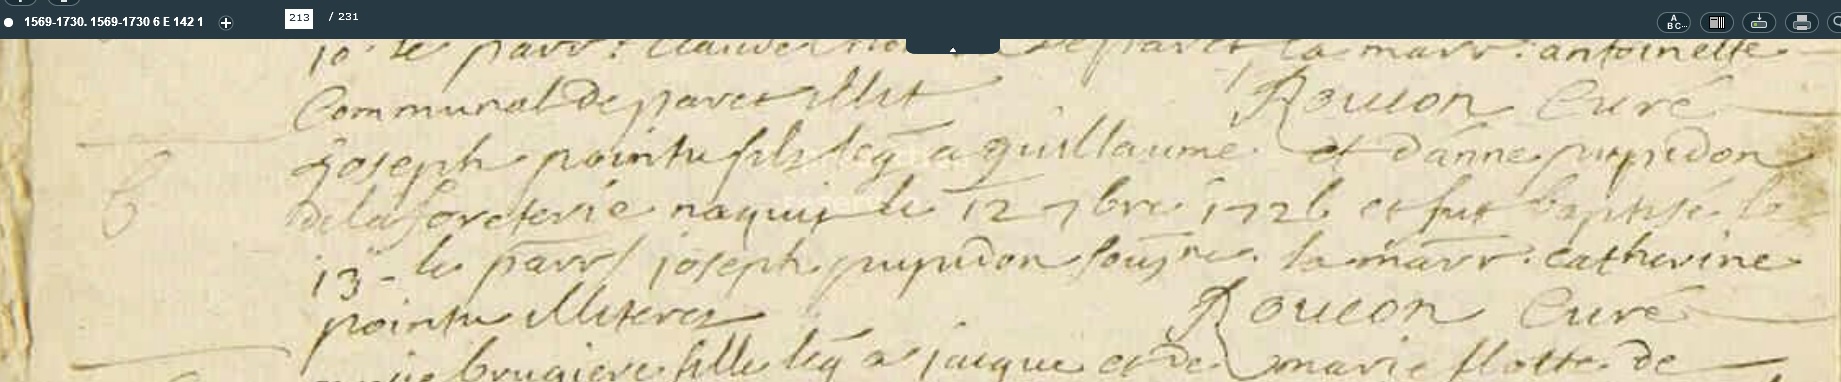 1569-1730. 1569-1730 6 E 142 1
213 / 231
10 le parr: claude la marr: antoinette
Communal de illit Roucon Curé
joseph pointu fils leg a guillaume et d'anne pupidon
b
de la foreterie naquit le 12 7bre 1726 et fut baptisé le
13 - le parr joseph pupidon la marr: catherine
pointu illiterez Roucon Curé
brugiere fille leg a jacque et de marie flotte de